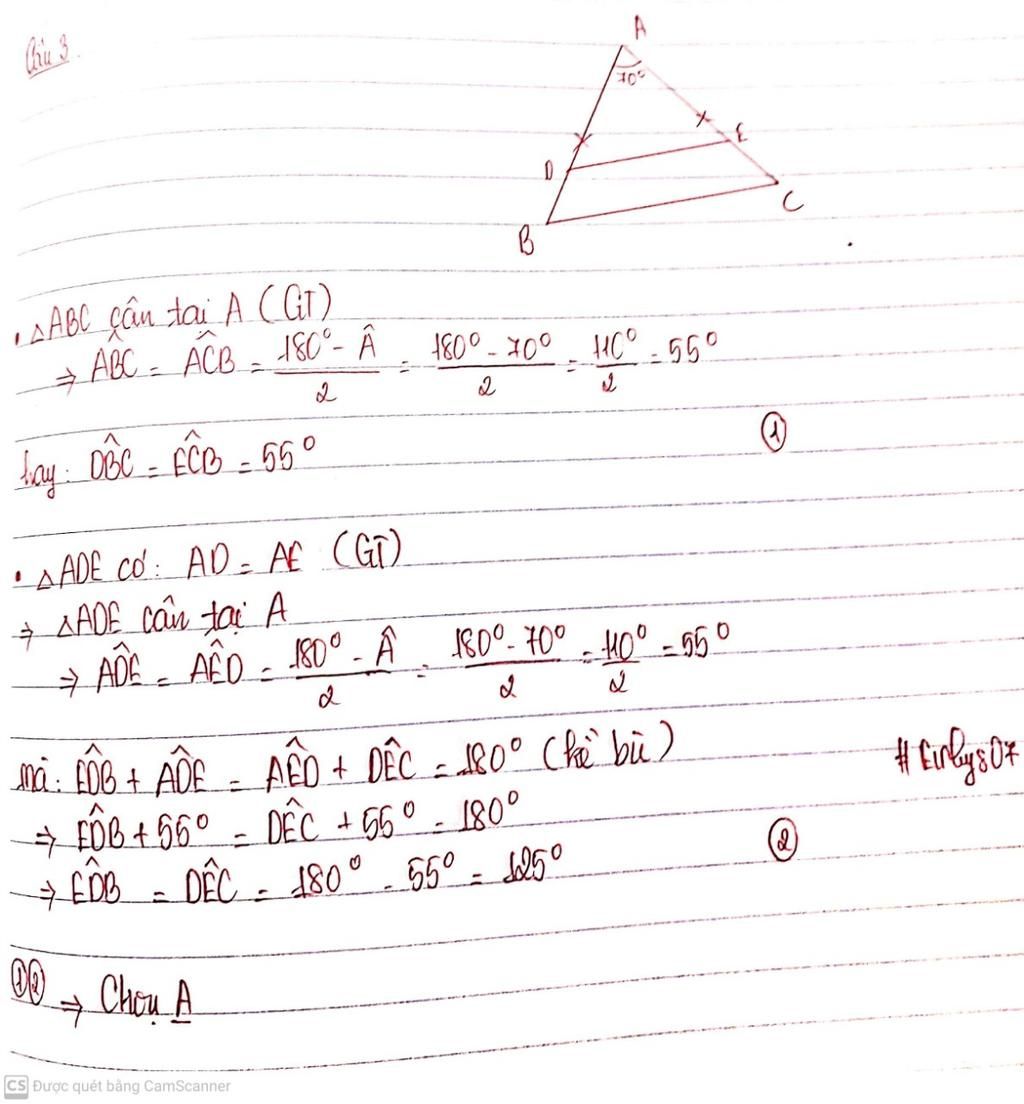 Câu 3.
A
70°
D
E
B
C
• △ABC cân tai A (GT)
⇒ AB̂C = AĈB = (180° - Â)/2 = (180° - 70°)/2 = 110°/2 = 55°
hay: DB̂C = EĈB = 55° ①
• △ADE có: AD = AE (GT)
⇒ △ADE cân tại A
⇒ AD̂E = AÊD = (180° - Â)/2 = (180° - 70°)/2 = 110°/2 = 55°
mà: ED̂B + AD̂E = AÊD + DÊC = 180° (kề bù)
⇒ ED̂B + 55° = DÊC + 55° = 180°
⇒ ED̂B = DÊC = 180° - 55° = 125° ②
①② ⇒ Chọn A
CS Được quét bằng CamScanner